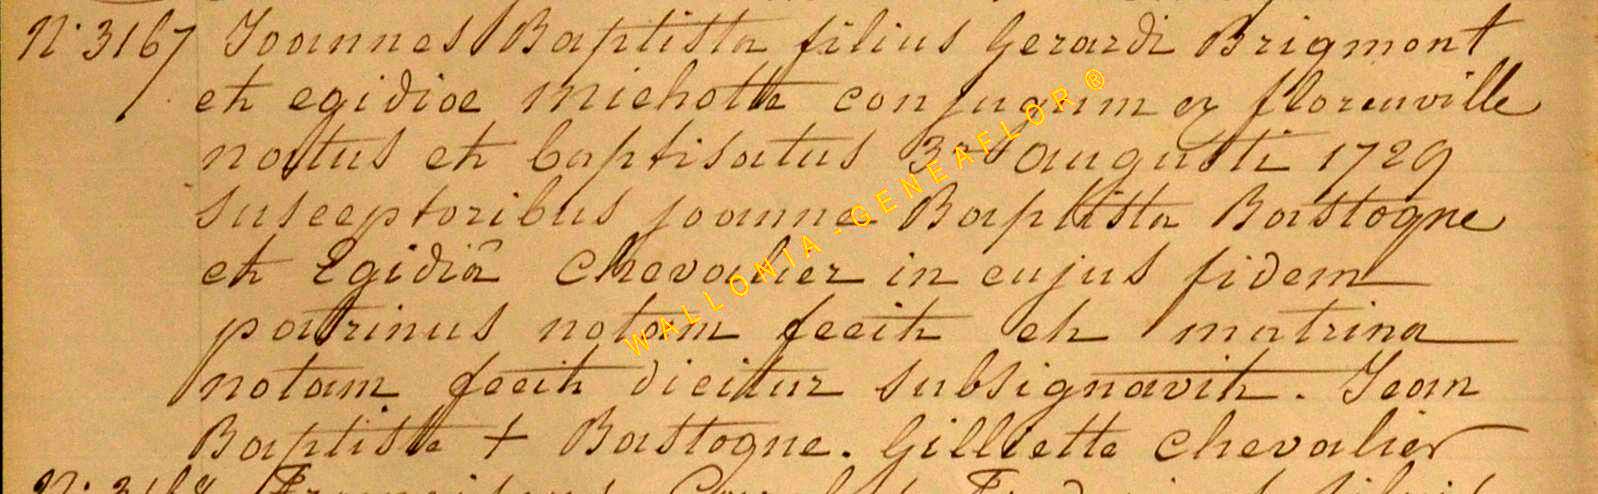 N° 3167 Joannes Baptista filius Gerardi Brigmont
et egidiae Michotte conjugum ex florenville
natus et baptisatus 3a augusti 1729
susceptoribus joanne Baptista Bastogne
et Egidiâ Chevalier in cujus fidem
patrinus notam fecit et matrina
notam fecit dicitur subsignavit. Jean
Baptiste + Bastogne. Gilliette Chevalier
N° 3168 Franciscus
WALLONIA-GENEAFLOR®